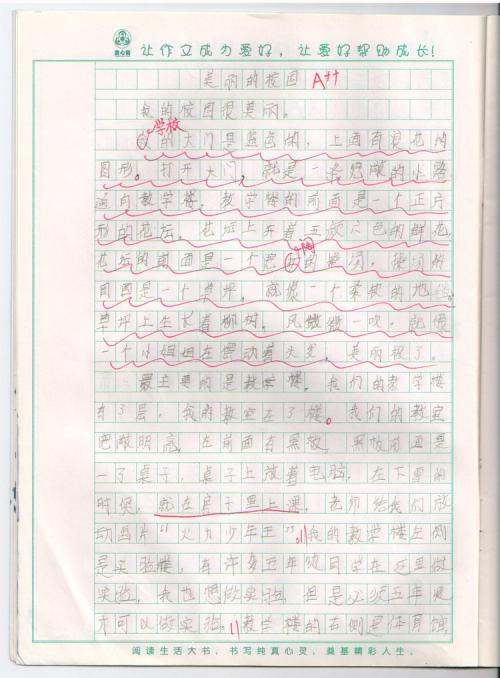 让作文成为爱好，让爱好帮助成长！
美丽的校园 A++
我的校园很美丽。
学校
的大门是蓝色的，上面有浪花的
图形。打开大门，就是一条宽敞的小路
通向教学楼。教学楼的前面是一个正方
形的花坛。花坛上开着五颜六色的鲜花，
花坛的前面是一个宽阔的操场，操场的
周围是一个草坪。就像一个柔软的地毯。
草坪上生长着柳树。风微微一吹，就像
一个小姐姐在摆动着头发。美丽极了。
最主要的是教学楼。我们的教学楼
有3层，我的教室在了楼。我们的教室
宽敞明亮，在前面有黑板，黑板前面是
一个桌子，桌子上放着电脑，在下雨的
时候，就在房子里上课，老师给我们放
动画片“火力少年王”。我的教学楼左侧
是实验楼，有许多五年级同学在这里做
实验，我也想做实验，但是必须五年级
才可以做实验。教学楼的右侧是体育馆，
阅读生活大书，书写纯真心灵，奠基精彩人生。